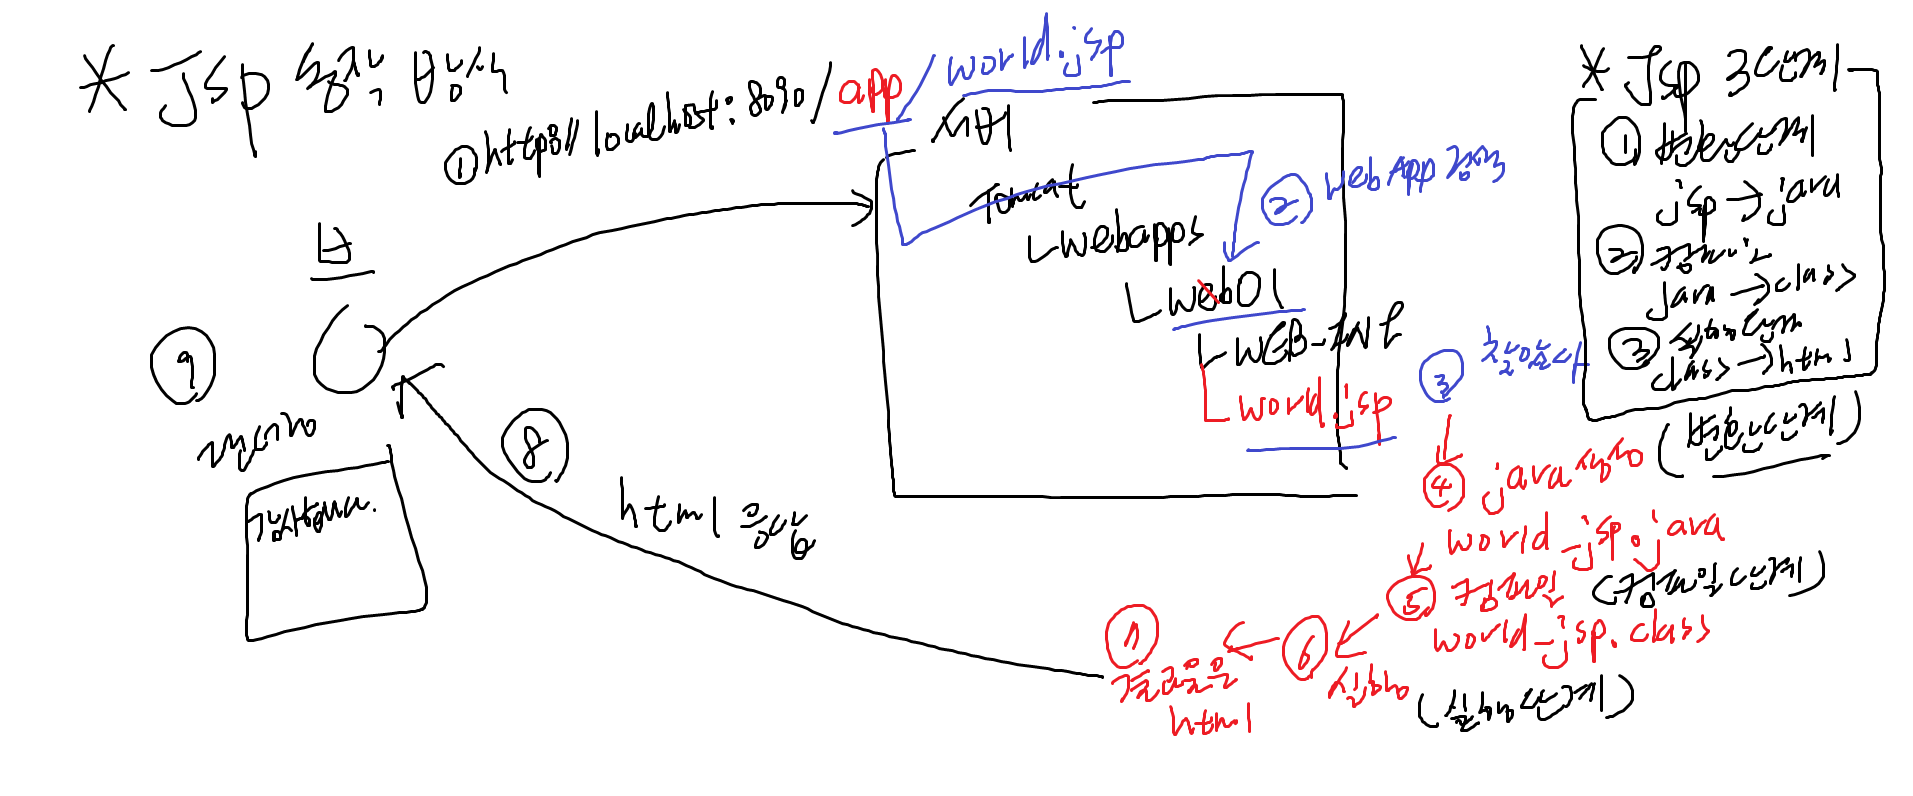 * Jsp 동작 방식
① http://localhost:8090/app/world.jsp
서버
Tomcat
② WebApp 검색
webapps
web01
WEB-INF
world.jsp
③ 찾았을시
④ java 생성 (변환단계)
world_jsp.java
⑤ 컴파일 (컴파일단계)
world_jsp.class
⑥ 실행 (실행단계)
⑦ 결과물은
html
⑧ html 응답
⑨ 렌더링
* Jsp 3단계
① 변환단계
jsp → java
② 컴파일
java → class
③ 실행단계
class → html